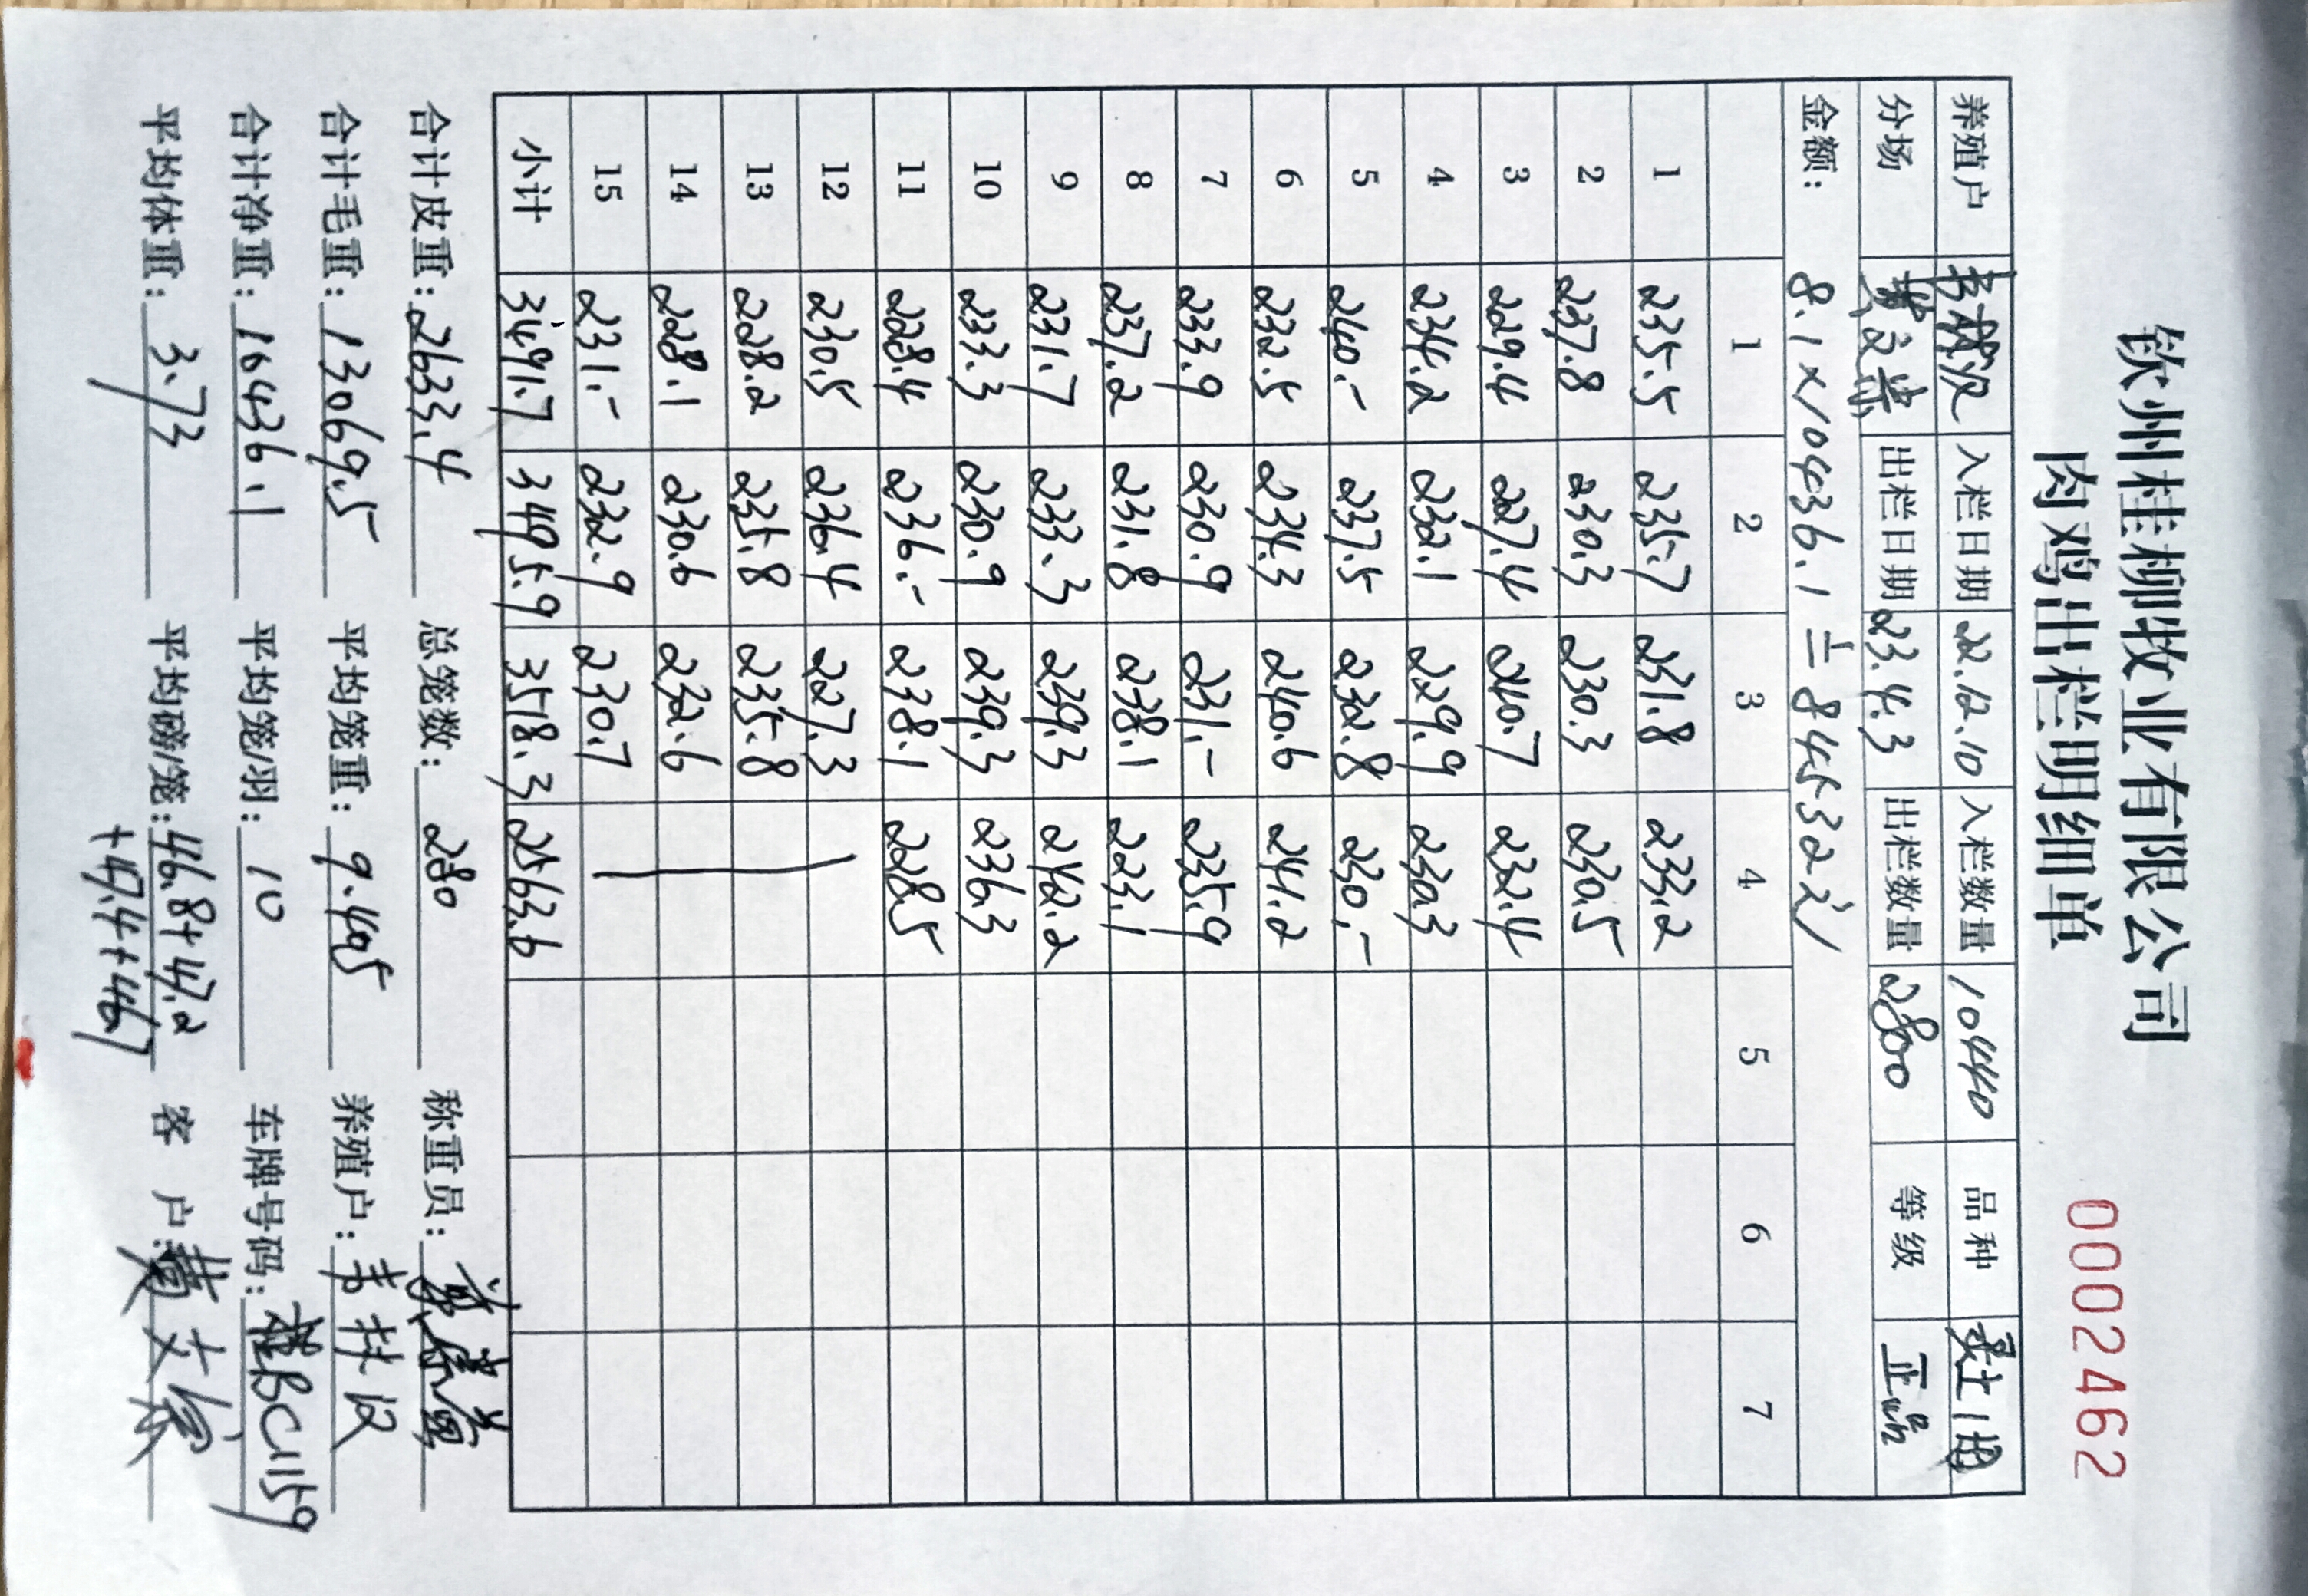 钦州桂柳牧业有限公司
肉鸡出栏明细单
0002462
养殖户 韦扶汉 入栏日期 22.12.10 入栏数量 10440 品种
分场 黄文崇 出栏日期 23.4.3 出栏数量 2800 等级 正品
金额： 8.1×10436.1=84532元
1 2 3 4 5 6 7
1 235.5 235.7 231.8 233.2
2 237.8 230.3 230.3 230.5
3 229.4 227.4 240.7 232.4
4 234.2 232.1 229.9 230.3
5 240.- 237.5 232.8 230.-
6 232.5 234.3 240.6 241.2
7 233.9 230.9 231.- 235.9
8 237.2 231.8 238.1 223.1
9 231.7 233.3 239.3 242.2
10 233.3 230.9 239.3 236.3
11 228.4 236.- 238.1 228.5
12 230.5 236.4 227.3
13 228.2 235.8 235.8
14 228.1 230.6 232.6
15 231.- 232.9 230.7
小计 3491.7 3495.9 3518.3 2563.6
合计皮重：2633.4 总笼数：280 称重员：
合计毛重：13069.5 平均笼重：9.405 养殖户：韦扶汉
合计净重：10436.1 平均笼/羽：10 车牌号码：桂BCU159
平均体重：3.73 平均磅/笼：46.8+47.2 客 户：黄
+47.4+46.7